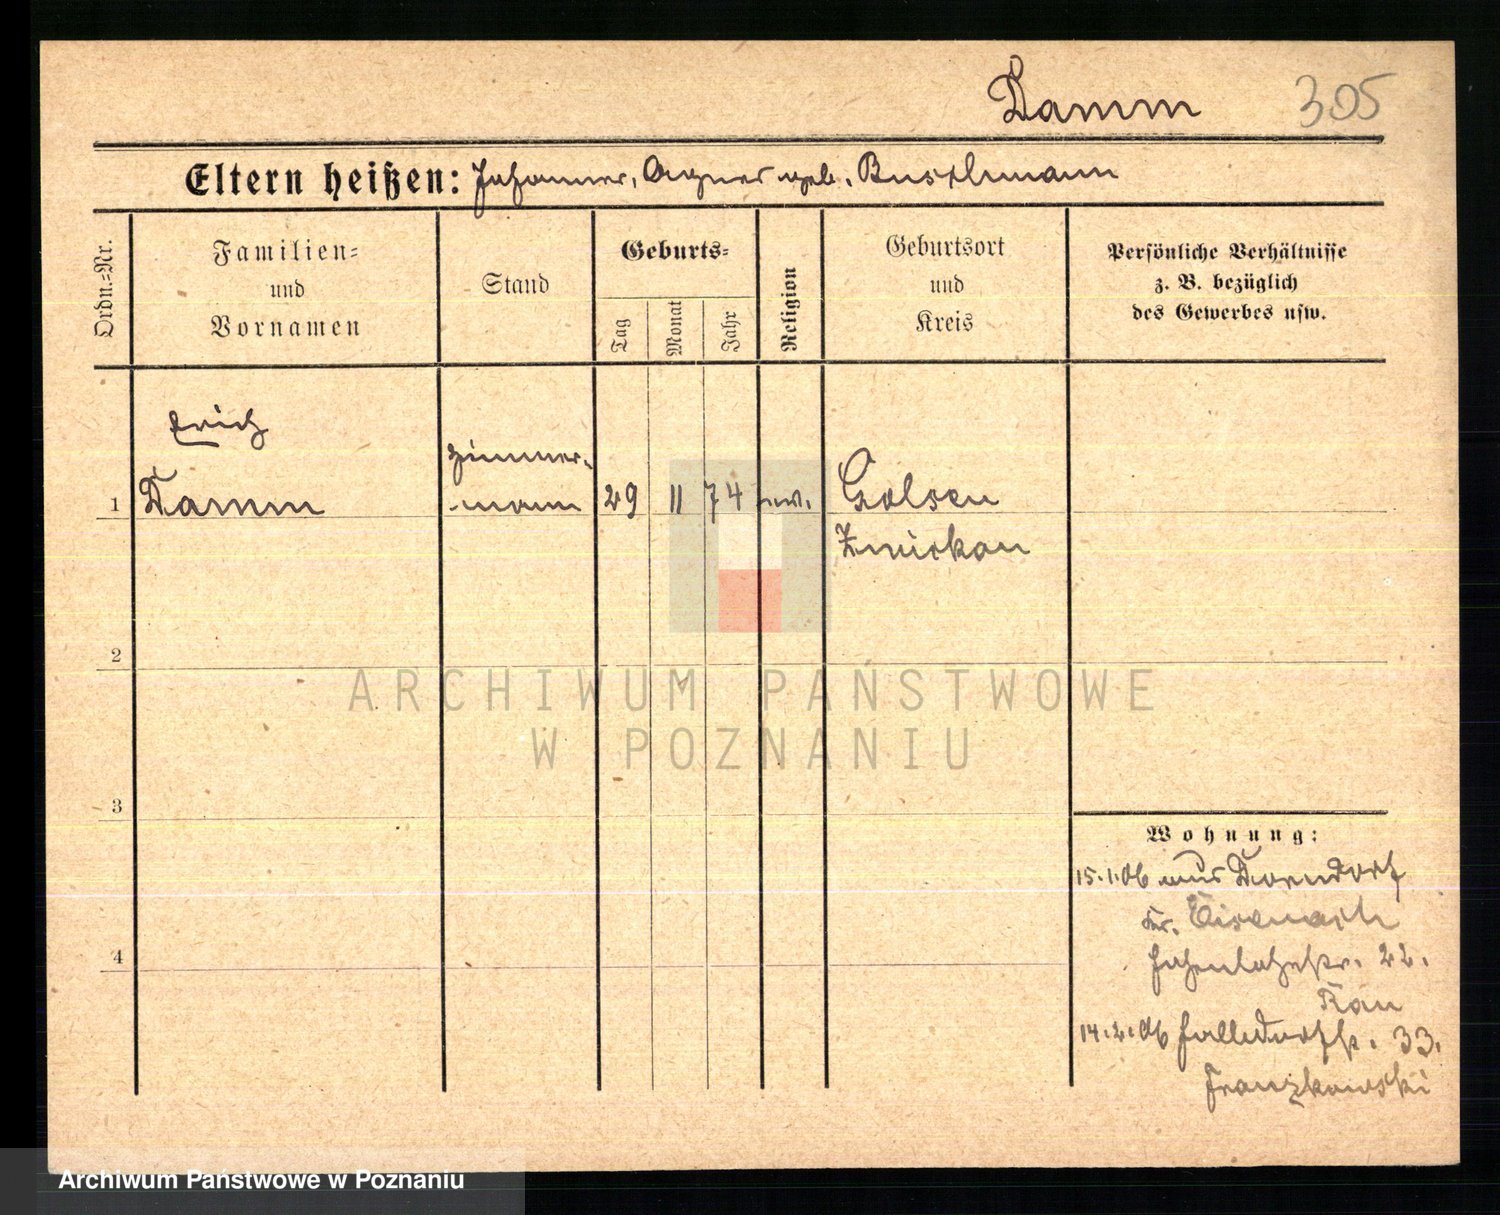 Damm 305
Eltern heißen: Johannes, Agnes geb. Buschmann
Ordn.-Nr.
Familien-
und
Vornamen
Stand
Geburts-
Tag
Monat
Jahr
Religion
Geburtsort
und
Kreis
Persönliche Verhältnisse
z. B. bezüglich
des Gewerbes usw.
Erich
Zimmer-
1 Damm -mann 29 11 74 ev.
Zwickau
2
ARCHIWUM PAŃSTWOWE
W POZNANIU
3
Wohnung:
15.1.06 aus Dorndorf
Kr. Eisenach
22.
Rau
4
14.2.06 33.
Franzkowski
Archiwum Państwowe w Poznaniu